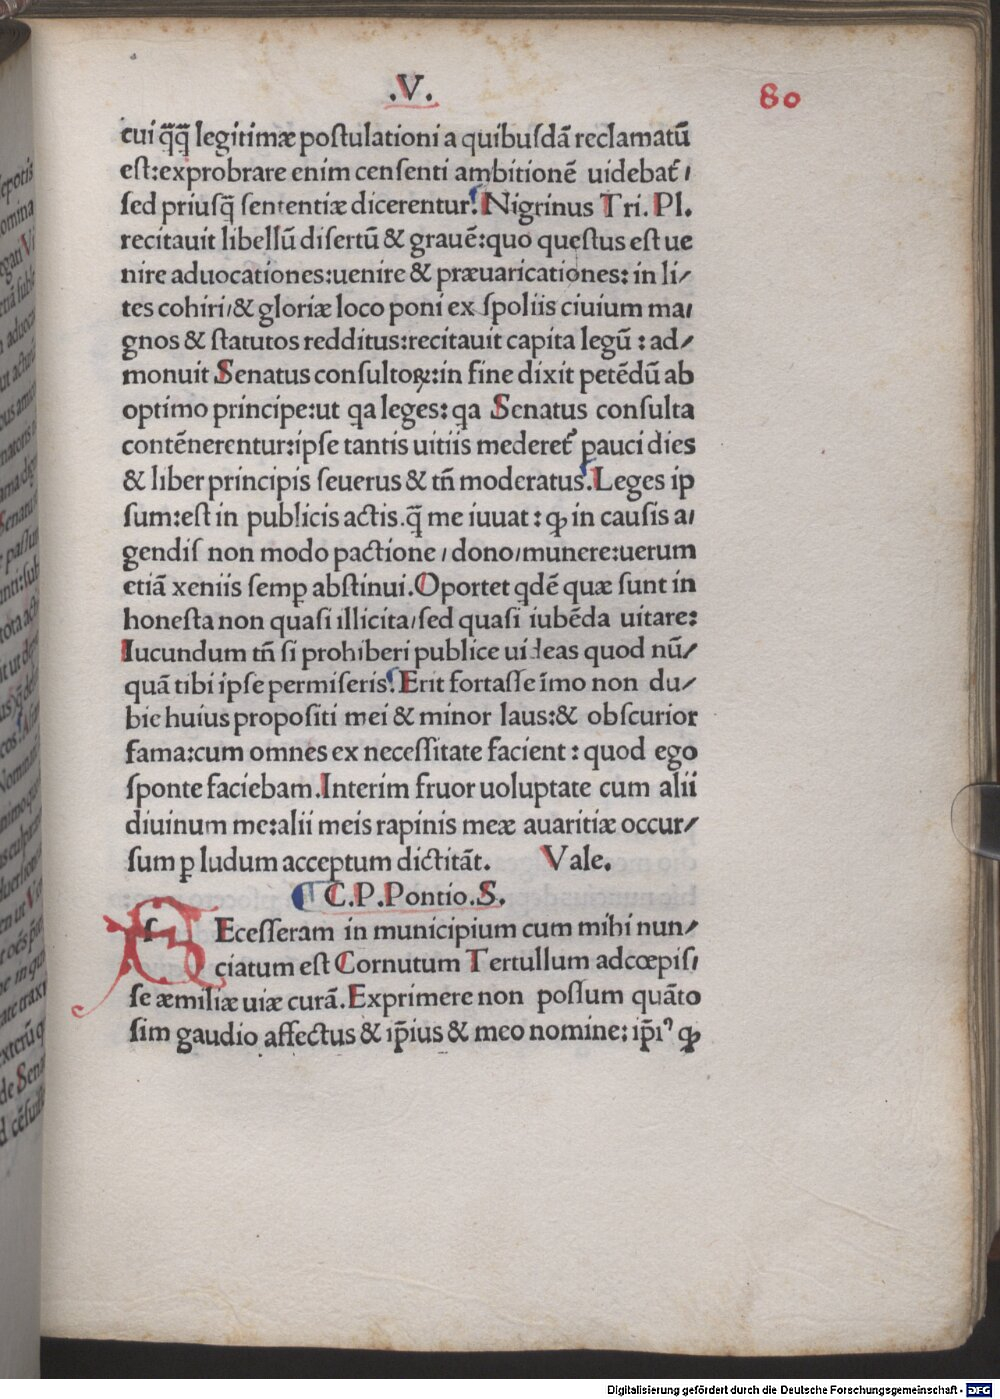 .V.
80
cui q̄q̄ legitimæ poſtulationi a quibuſdā reclamatū
eſt:exprobrare enim cenſenti ambitionē uidebat᷑/
ſed priuſq̄ ſententiæ dicerentur. Nigrinus Tri. Pl.
recitauit libellū diſertū & grauē:quo queſtus eſt ue
nire aduocationes:uenire & præuaricationes: in li/
tes cohiri/& gloriæ loco poni ex ſpoliis ciuium ma/
gnos & ſtatutos redditus:recitauit capita legū : ad/
monuit Senatus conſultoꝝ:in fine dixit petēdū ab
optimo principe:ut qa leges: qa Senatus conſulta
contēnerentur:ipſe tantis uitiis mederet᷑ pauci dies
& liber principis ſeuerus & tn̄ moderatus. Leges ip
ſum:eſt in publicis actis.q̄ me iuuat : ꝙ in cauſis a/
gendiſ non modo pactione / dono/munere:uerum
etiā xeniis ſemꝑ abſtinui.Oportet qdē quæ ſunt in
honeſta non quaſi illicita/ſed quaſi iubēda uitare:
Iucundum tn̄ ſi prohiberi publice uideas quod nū/
quā tibi ipſe permiſeris. Erit fortaſſe īmo non du/
bie huius propoſiti mei & minor laus:& obſcurior
fama:cum omnes ex neceſſitate facient : quod ego
ſponte faciebam.Interim fruor uoluptate cum alii
diuinum me:alii meis rapinis meæ auaritiæ occur/
ſum ꝑ ludum acceptum dictitāt. Vale.
C.P.Pontio.S.
Eceſſeram in municipium cum mihi nun/
ciatum eſt Cornutum Tertullum adcœpiſ/
ſe æmiliæ uiæ curā.Exprimere non poſſum quāto
ſim gaudio affectus & ip̄ius & meo nomine: ip̄iꝰ ꝙ
Digitalisierung gefördert durch die Deutsche Forschungsgemeinschaft - DFG